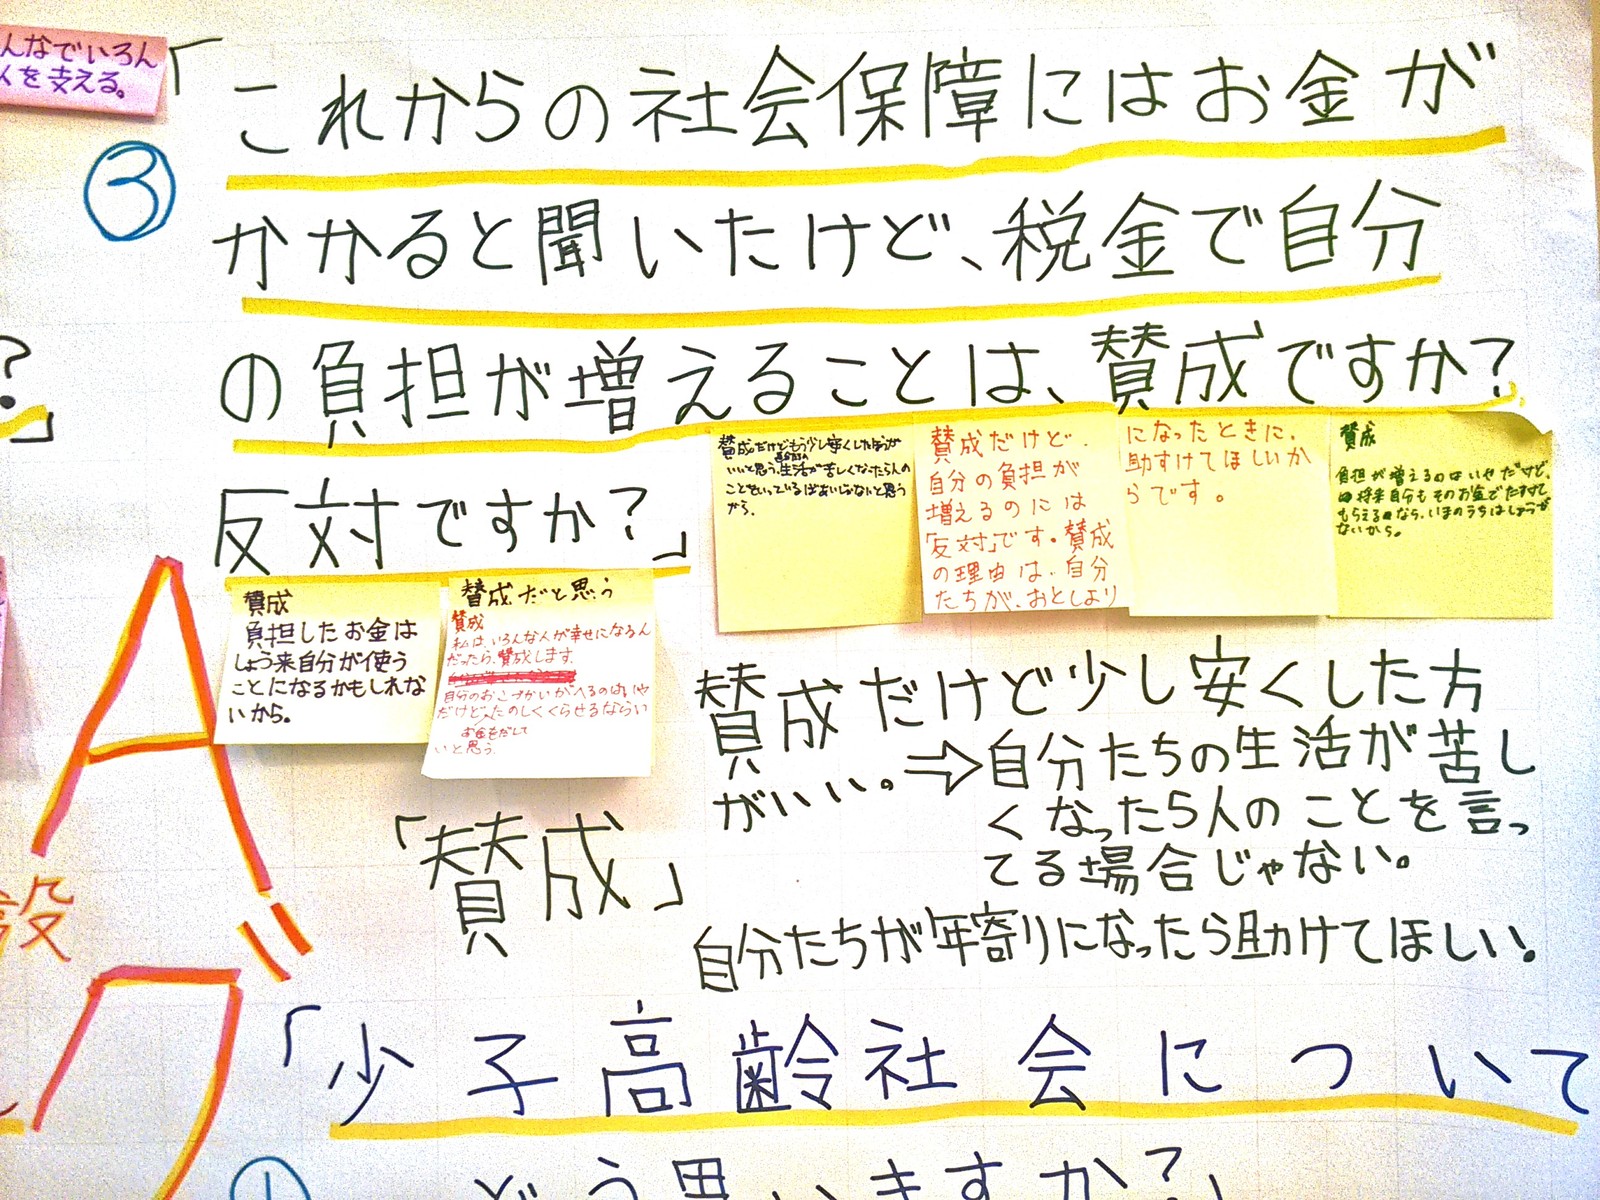 んなでいろん
人を支える。
③
「これからの社会保障にはお金が
かかると聞いたけど、税金で自分
の負担が増えることは、賛成ですか?
反対ですか?」
?」
賛成だけどもう少し安くしたほうが
いいと思う。生活が苦しくなったら人の
ことをいっているばあいじゃないと思う
から。
賛成だけど、
自分の負担が
増えるのには
「反対」です。賛成
の理由は、自分
たちが、おとしより
になったときに、
助すけてほしいか
らです。
賛成
負担が増えるのはいやだけど、
将来自分もそのお金でたすけて
もらえるなら、いまのうちはしょうが
ないから。
賛成
負担したお金は
しょう来自分が使う
ことになるかもしれな
いから。
賛成だと思う
賛成
私は、いろんな人が幸せになるん
だったら、賛成します。
自分のおこづかいがへるのはいや
だけど、たのしくくらせるならい
お金をだして
いと思う。
賛成だけど少し安くした方
がいい。⇨自分たちの生活が苦し
くなったら人のことを言っ
てる場合じゃない。
「賛成」
自分たちが年寄りになったら助けてほしい。
A
設
グ
「少子高齢社会について
①
どう思いますか?」